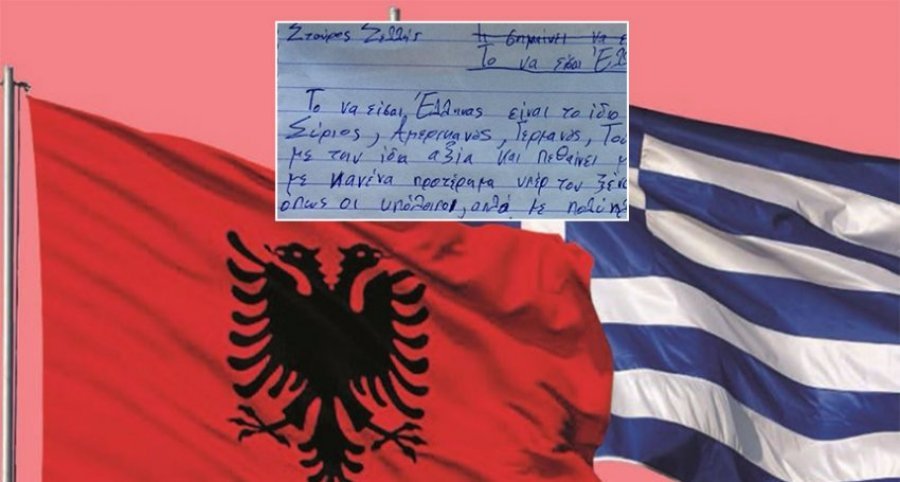 Σταύρος Τι σημαίνει να ε
Το να είσαι Ελλ
Το να είσαι Έλληνας είναι το ίδιο
Σύριος, Αμερικανός, Γερμανός, Του
με την ίδια αξία και πεθαίνει μ
με κανένα προτέρημα υπέρ του ξένο
οπως οι υπόλοιποι, αλλά με